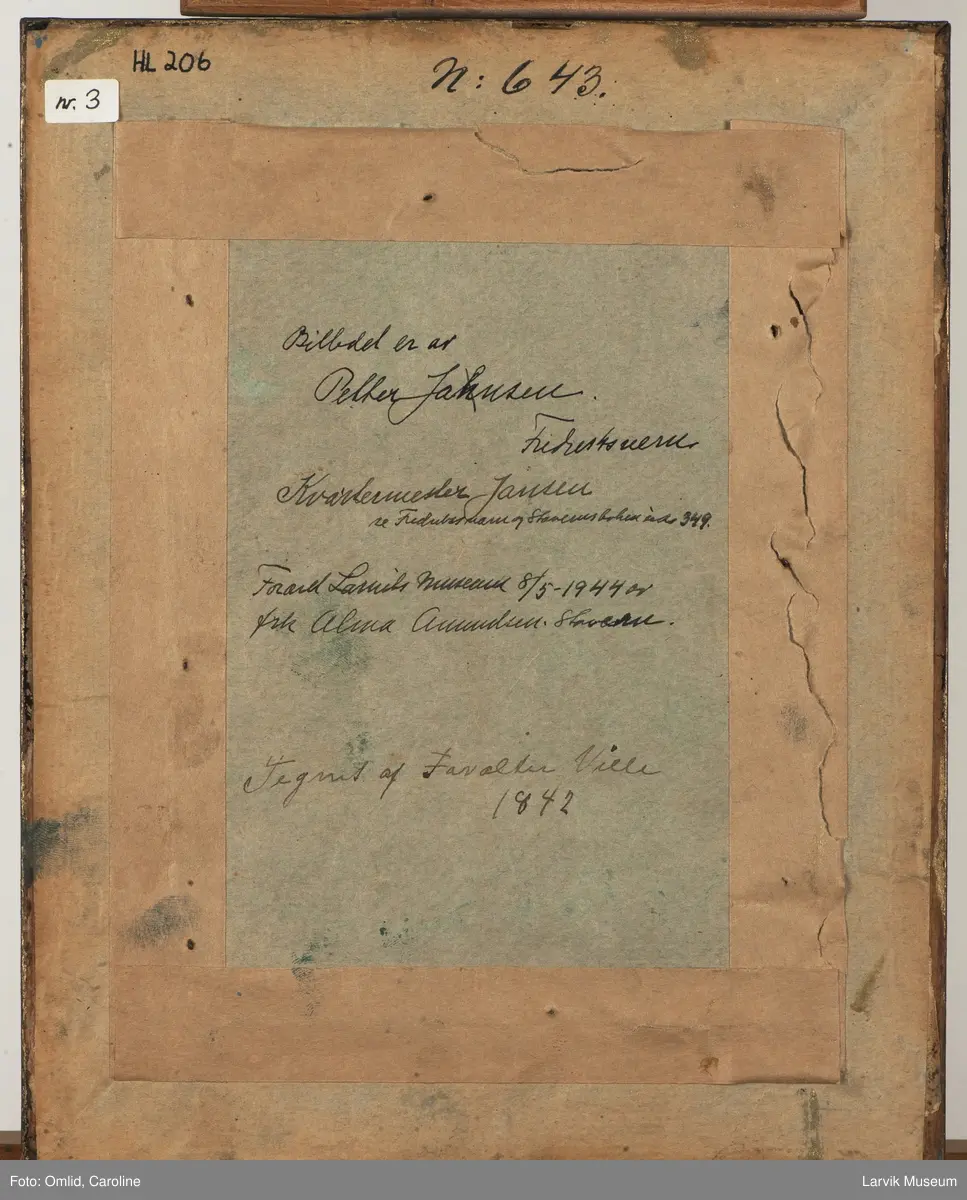 HL 206
N: 643.
nr. 3
Billedet er av
Petter Jahnsen.
Fredriksvern
Kvartermester Jansen
se Fredriksvern og Stavernsboken side 349.
Foræret Larviks Museum 8/5-1944 av
frk Alma Amundsen. Stavern.
Tegnet af Ville
1842
Foto: Omlid, Caroline
Larvik Museum